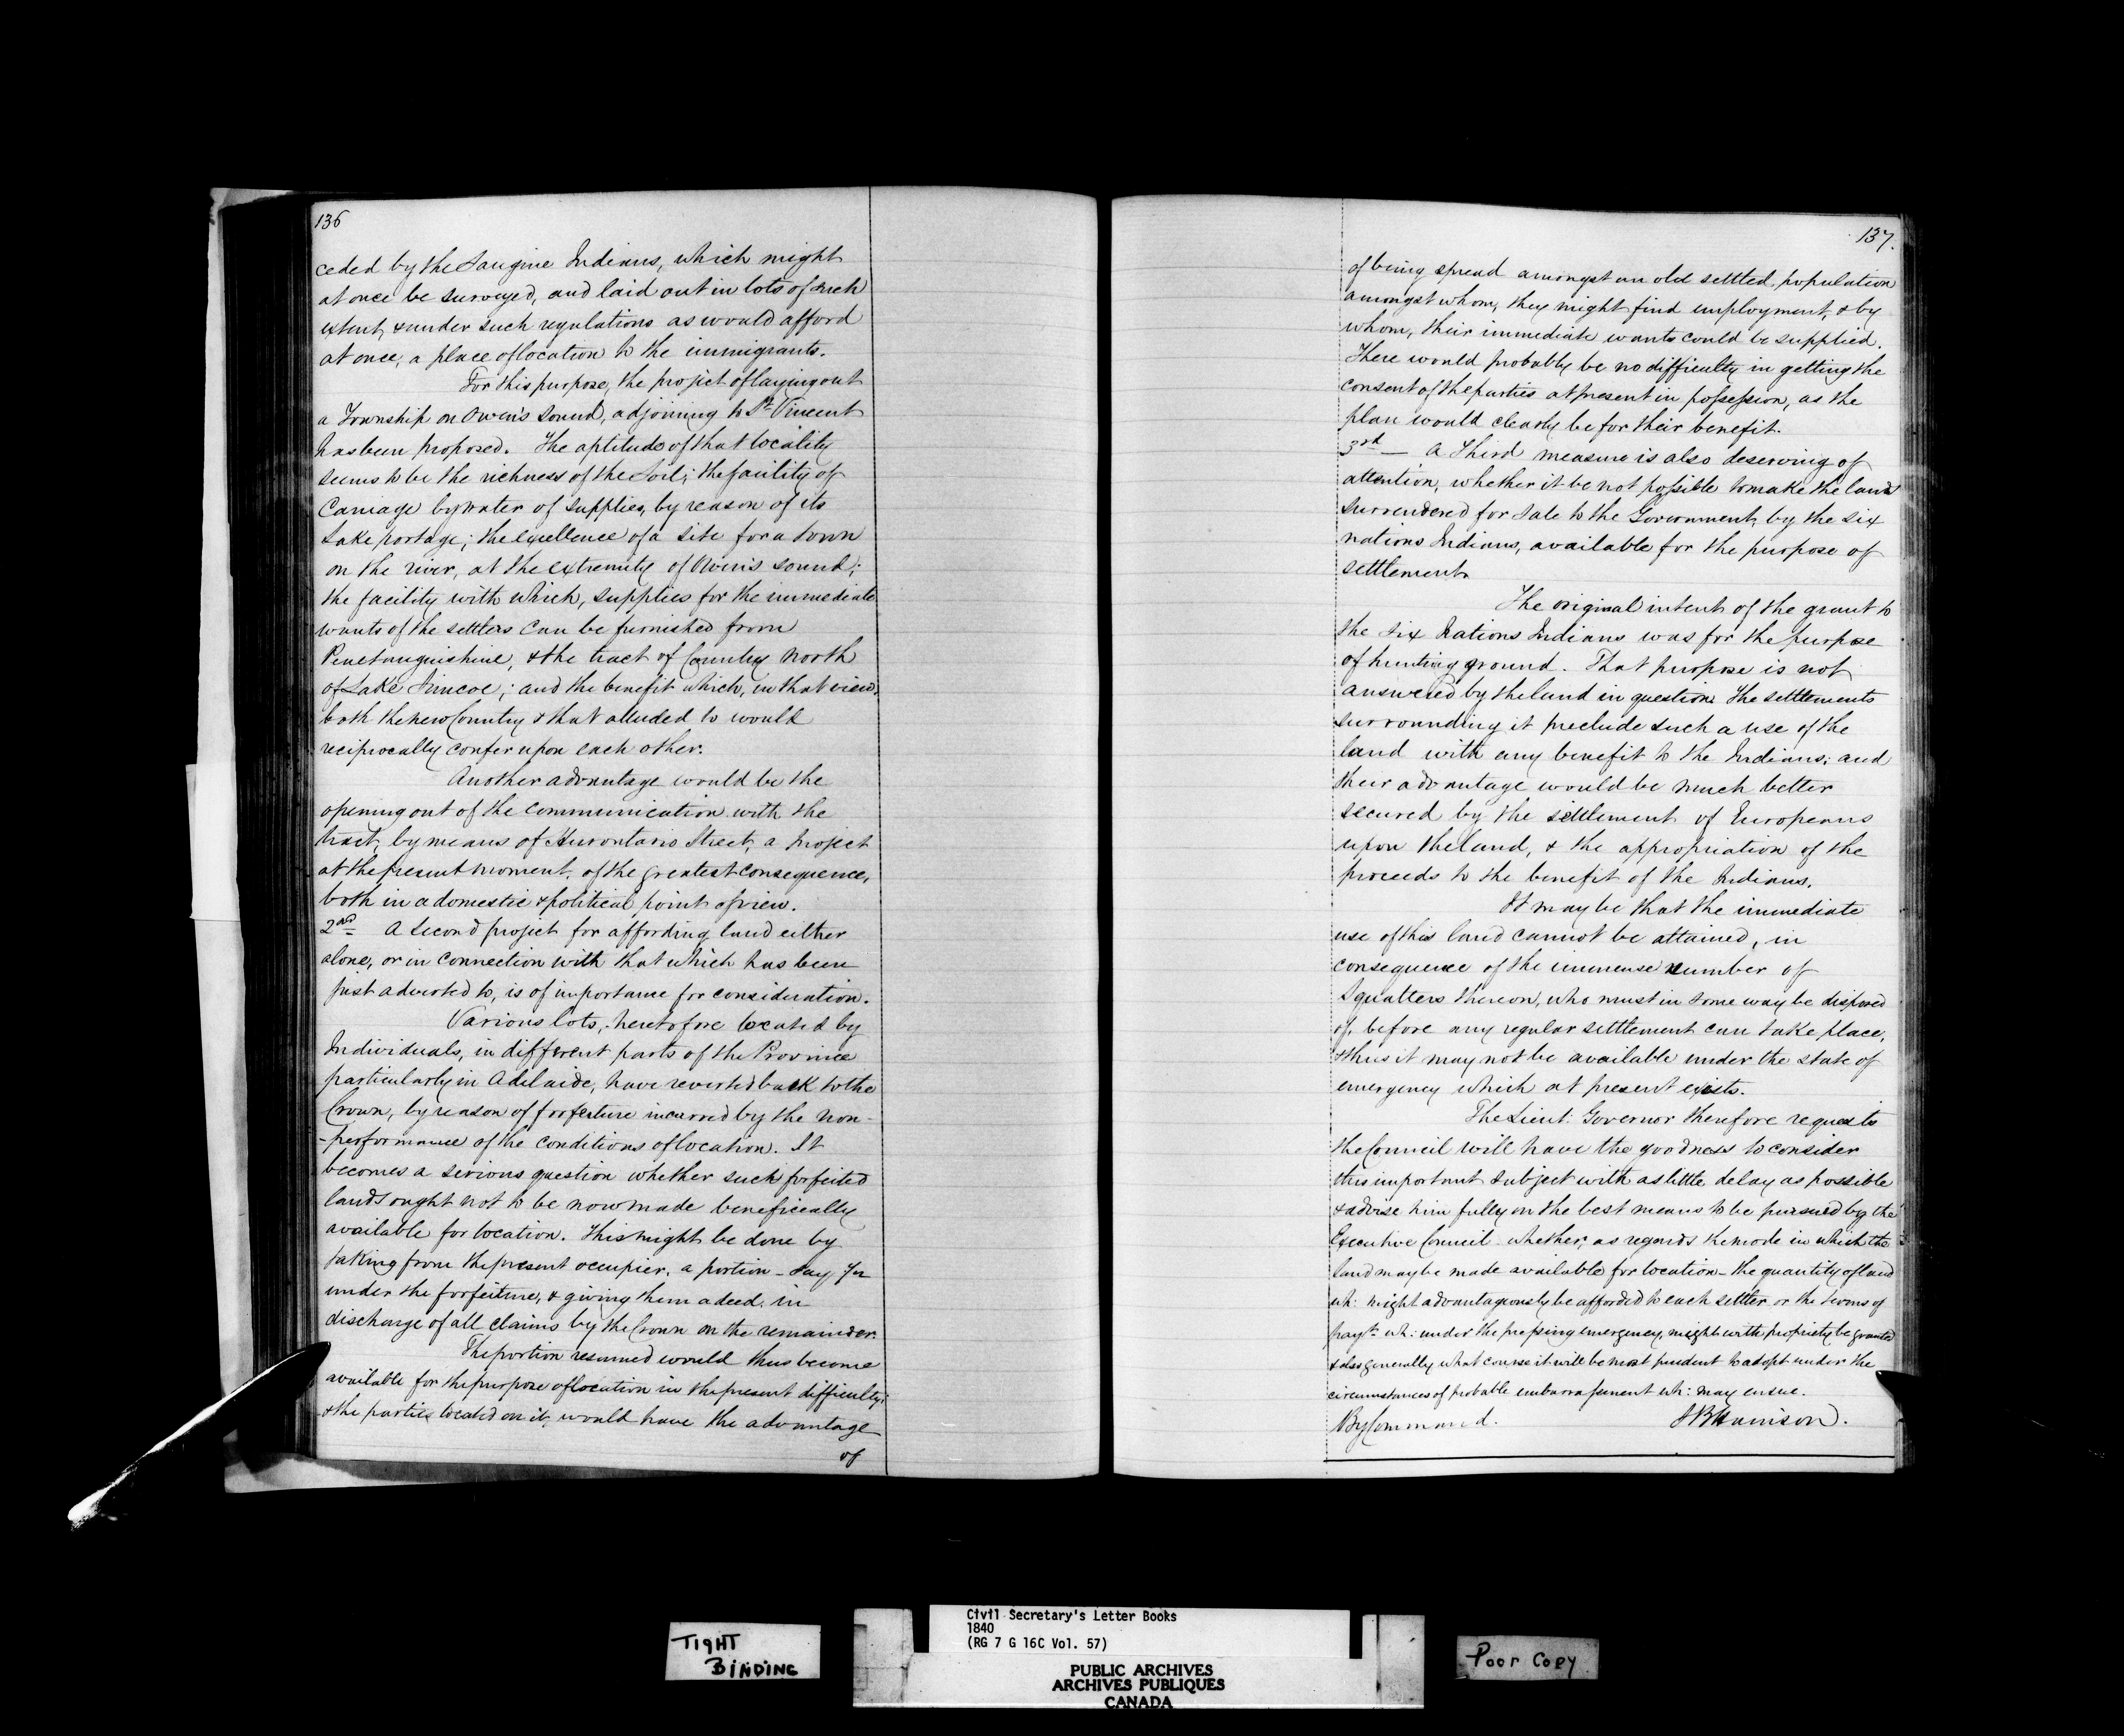 136
ceded by the Saugine Indians, which might
at once be surveyed, and laid out in lots of such
extent, & under such regulations as would afford
at once, a place of location to the immigrants.
For this purpose, the project of laying out
a Township on Owen's Sound, adjoining to St. Vincent
has been proposed. The aptitude of that locality
seems to be the richness of the Soil; the facility of
Carriage by water of supplies, by reason of its
Lake portage; the excellence of a site for a town
on the river, at the extremity of Owen's sound;
the facility with which, supplies for the immediate
wants of the settlers can be furnished from
Penetanguishine, & the tract of Country North
of Lake Simcoe; and the benefit which, in that view,
both the new Country & that alluded to would
reciprocally confer upon each other.
Another advantage would be the
opening out of the communication with the
tract, by means of Hurontario Street, a project
at the present moment, of the greatest consequence,
both in a domestic & political point of view.
2nd A Second project for affording land either
alone, or in connection with that which has been
just adverted to, is of importance for consideration.
Various lots, heretofore located by
Individuals, in different parts of the Province
particularly in Adelaide, have reverted back to the
Crown, by reason of forfeiture incurred by the non-
-performance of the conditions of location. It
becomes a serious question whether such forfeited
lands ought not to be now made beneficially
available for location. This might be done by
taking from the present occupier, a portion - say
under the forfeiture, & giving them a deed, in
discharge of all claims by the Crown on the remainder.
The portion resumed would thus become
available for the purpose of location in the present difficulty;
& the parties located on it, would have the advantage
of
137.
of being spread amongst an old settled population
amongst whom, they might find employment, & by
whom, their immediate wants could be supplied.
There would probably be no difficulty in getting the
consent of the parties at present in possession, as the
plan would clearly be for their benefit.
3rd — A Third measure is also deserving of
attention, whether it be not possible to make the land
surrendered for Sale to the Government, by the Six
nations Indians, available for the purpose of
settlement.
The original intent of the grant to
the Six Nations Indians was for the purpose
of hunting ground. That purpose is not
answered by the land in question. The settlements
surrounding it preclude such a use of the
land with any benefit to the Indians; and
their advantage would be much better
secured by the settlement of Europeans
upon the land, & the appropriation of the
proceeds to the benefit of the Indians.
It may be that the immediate
use of this land cannot be attained, in
consequence of the immense number of
Squatters thereon, who must in some way be disposed
of, before any regular settlement can take place,
& thus it may not be available under the state of
emergency which at present exists.
The Lieut: Governor therefore requests
the Council will have the goodness to consider
this important subject with as little delay as possible
& advise him fully on the best means to be pursued by the
Executive Council whether, as regards the mode in which the
land may be made available for location - the quantity of land
wh: might advantageously be afforded to each settler or the terms of
payt. wh: under the pressing emergency, might with propriety be granted
& also generally what course it will be most prudent to adopt under the
circumstances of probable embarrassment wh: may ensue.
By Command. S B Harrison.
TIGHT
BINDING
Civil Secretary's Letter Books
1840
(RG 7 G 16C Vol. 57)
PUBLIC ARCHIVES
ARCHIVES PUBLIQUES
CANADA
Poor Copy